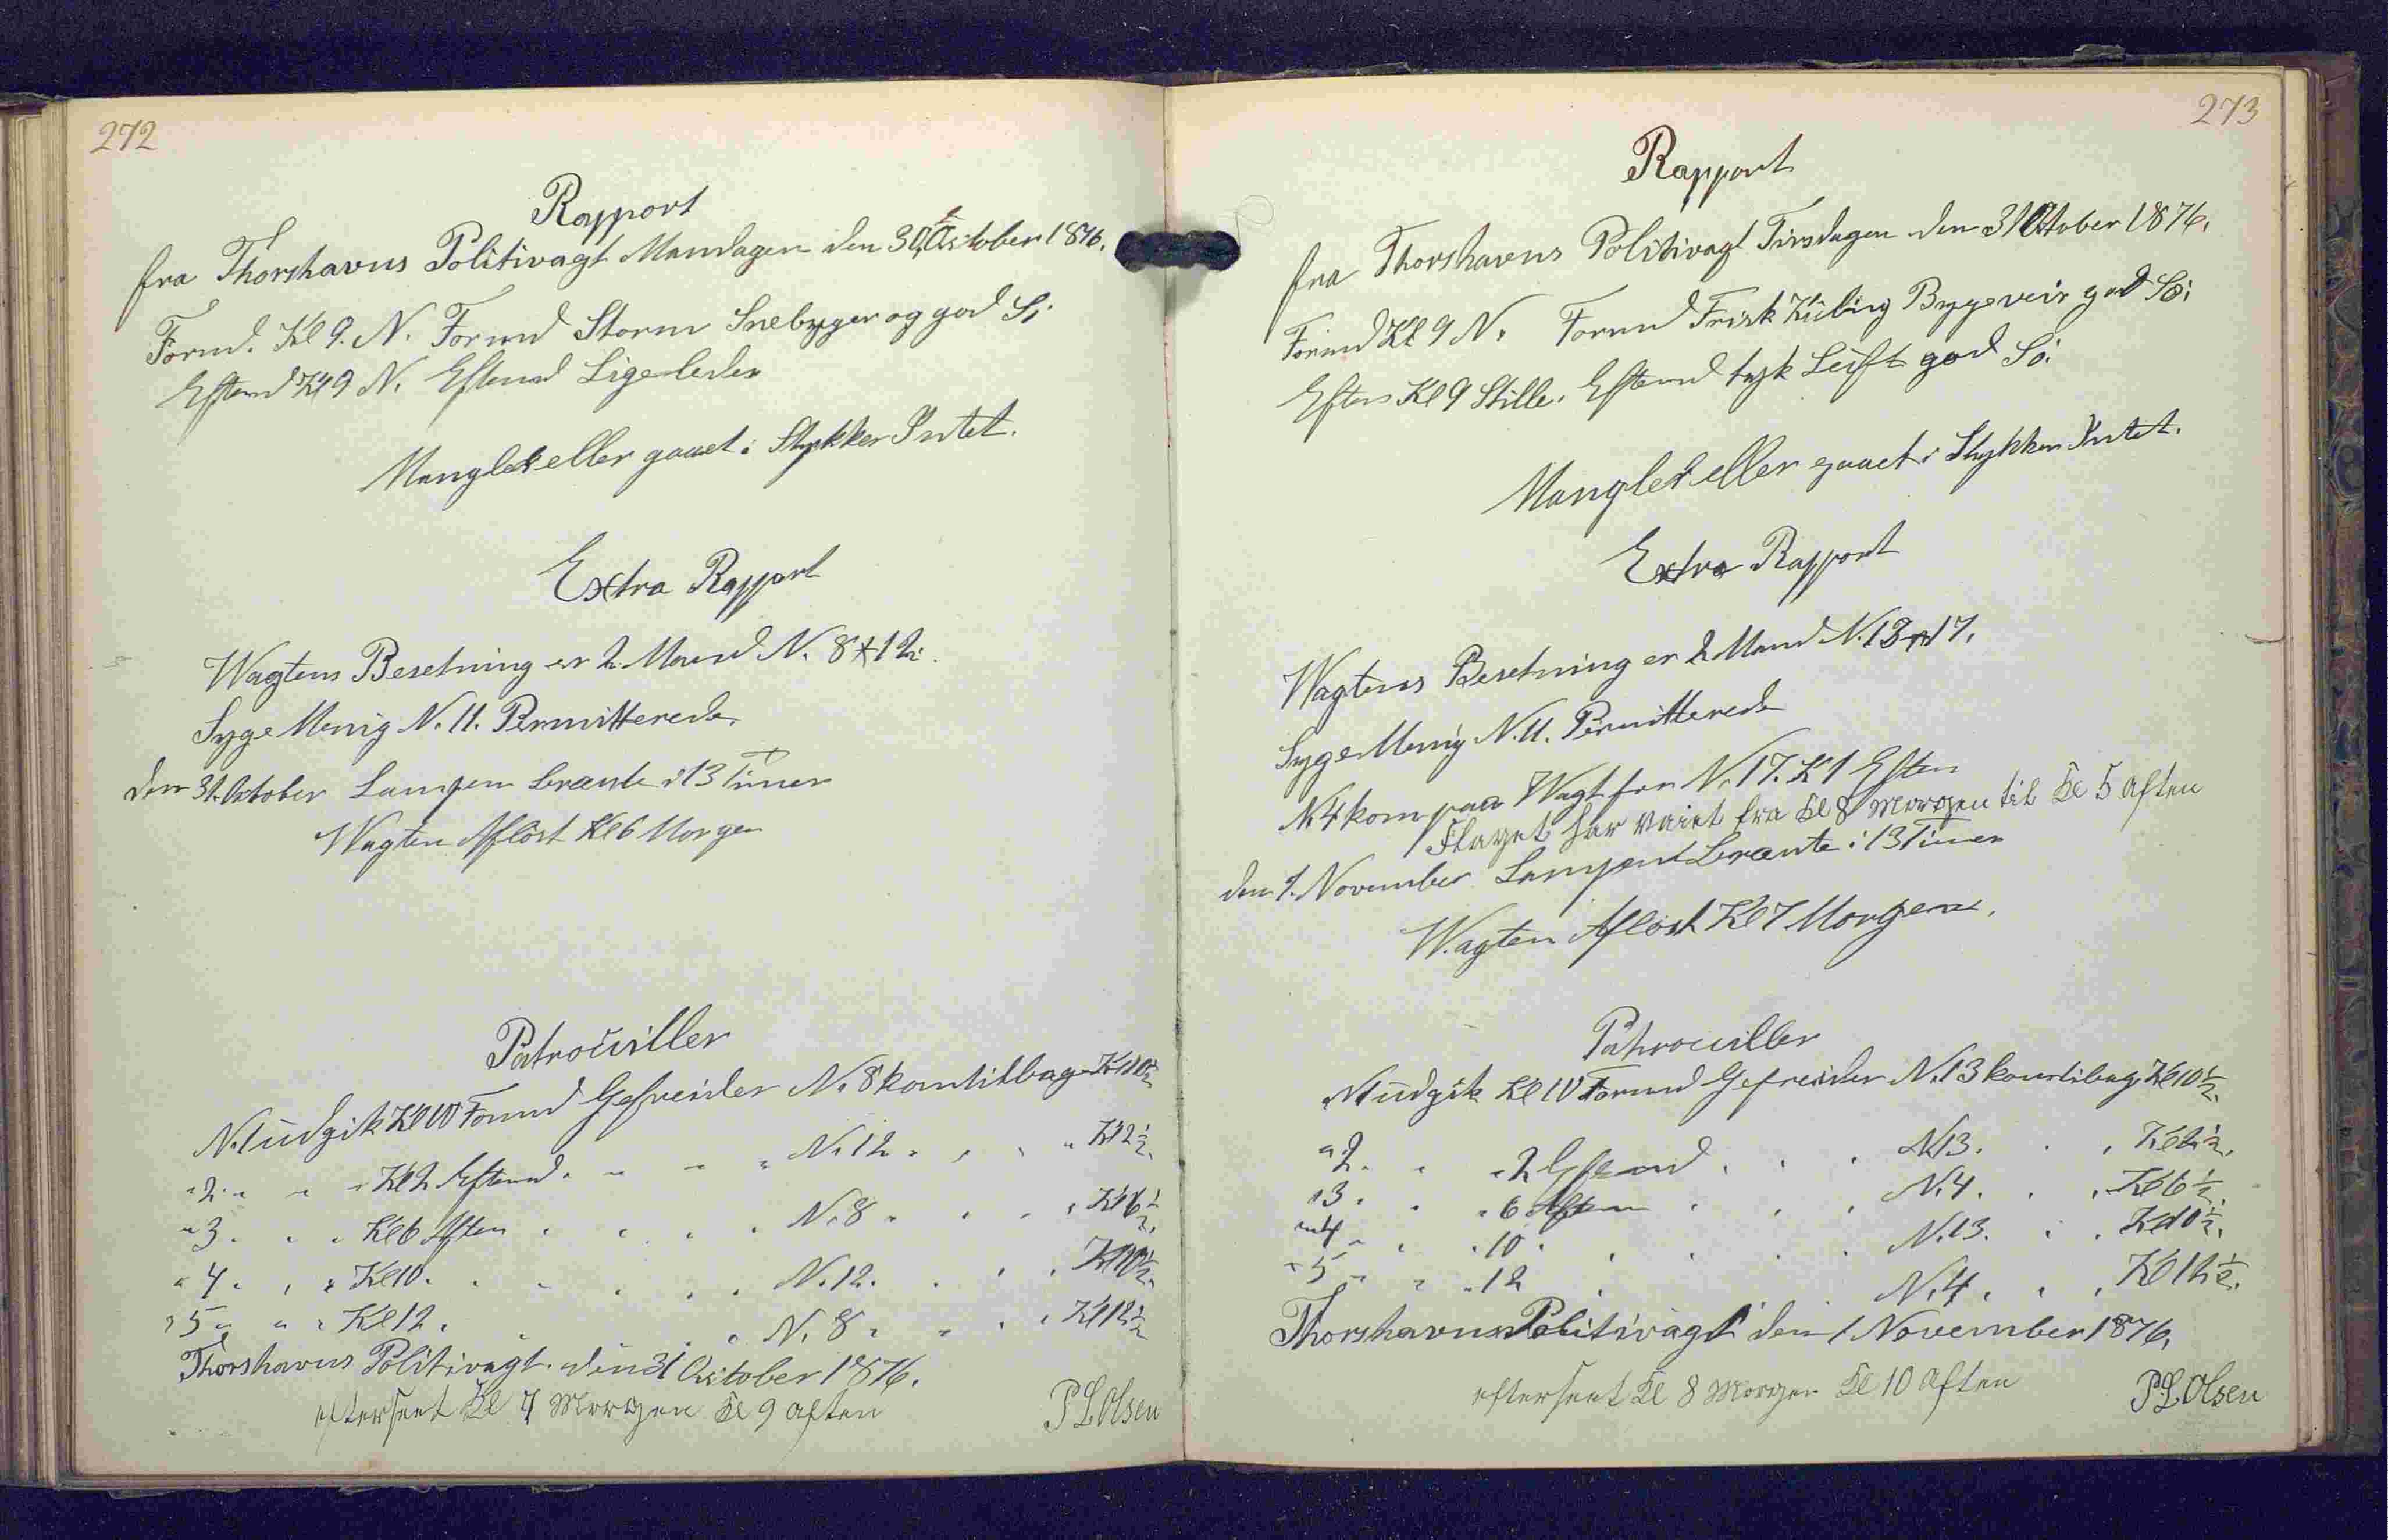 272
Rapport
fra Thorshavns Politivagt Mandagen den 30 October 1876.
Formd. Kl 9. N. Formd Storm Snebyger og god Sö.
Eftermd Kl 9 N. Eftermd Ligeledes
Manglet eller gaaet i Stykker Intet.
Extra Rapport
Wagtens Besetning er 2 Mand N. 8 & 12.
Syge Menig N. 11. Permitterede
den 31. October Lampen brænte i 13 Timer
Wagten Aflöst Kl 6 Morgen
Patrouiller
N. 1 udgik Kl 10 Formd Gefreider N. 8 kom tilbage Kl 10½
" 2. " " " Kl 2 Eftermd. " " " N. 12 " " " " Kl 2½.
" 3. " " " Kl 6 Aften " " " " N. 8 " " " " Kl 6½.
" 4. " " " Kl 10. " " " " N. 12. " " " Kl 10½.
" 5 " " " Kl 12. " " " " N. 8 " " " " Kl 12½
Thorshavns Politivagt. den 31 October 1876.
efterseet Kl 7 Morgen Kl 9 Aften
P L Olsen
273
Rapport
fra Thorshavens Politivagt Tirsdagen den 31 October 1876.
Formd Kl 9 N. Formd Frisk Kuling Bygeveir god Sö.
Efterm Kl 9 Stille. Eftermd tyk Luft god Sö.
Manglet eller gaaet i Stykker Intet.
Extra Rapport
Wagtens Besetning er 2 Mand N. 13 & 17.
Syge Menig N. 11. Permitterede
N. 4 kom paa Wagt for N. 17. Kl 1 Efterm
Flaget har vaiet fra Kl 8 Morgen til Kl 5 Aften
den 1. November Lampen brænte i 13 Timer
Wagten Aflöst Kl 7 Morgen.
Patrouiller
N. 1 udgik Kl 10 Formd Gefreider N. 13 kom tilbag Kl 10½.
" 2. " " 2 Eftermd . . . N. 13. . . Kl 2½.
" 3. . " 6 Aften . . . N. 4. . . Kl 6½.
" 4 " " " 10 " . . . N. 13. . . Kl 10½.
" 5 " " " 12 . . . N. 4. . . Kl 12½.
Thorshavns Politivagt den 1 November 1876.
efterseet Kl 8 Morgen Kl 10 Aften
P L Olsen